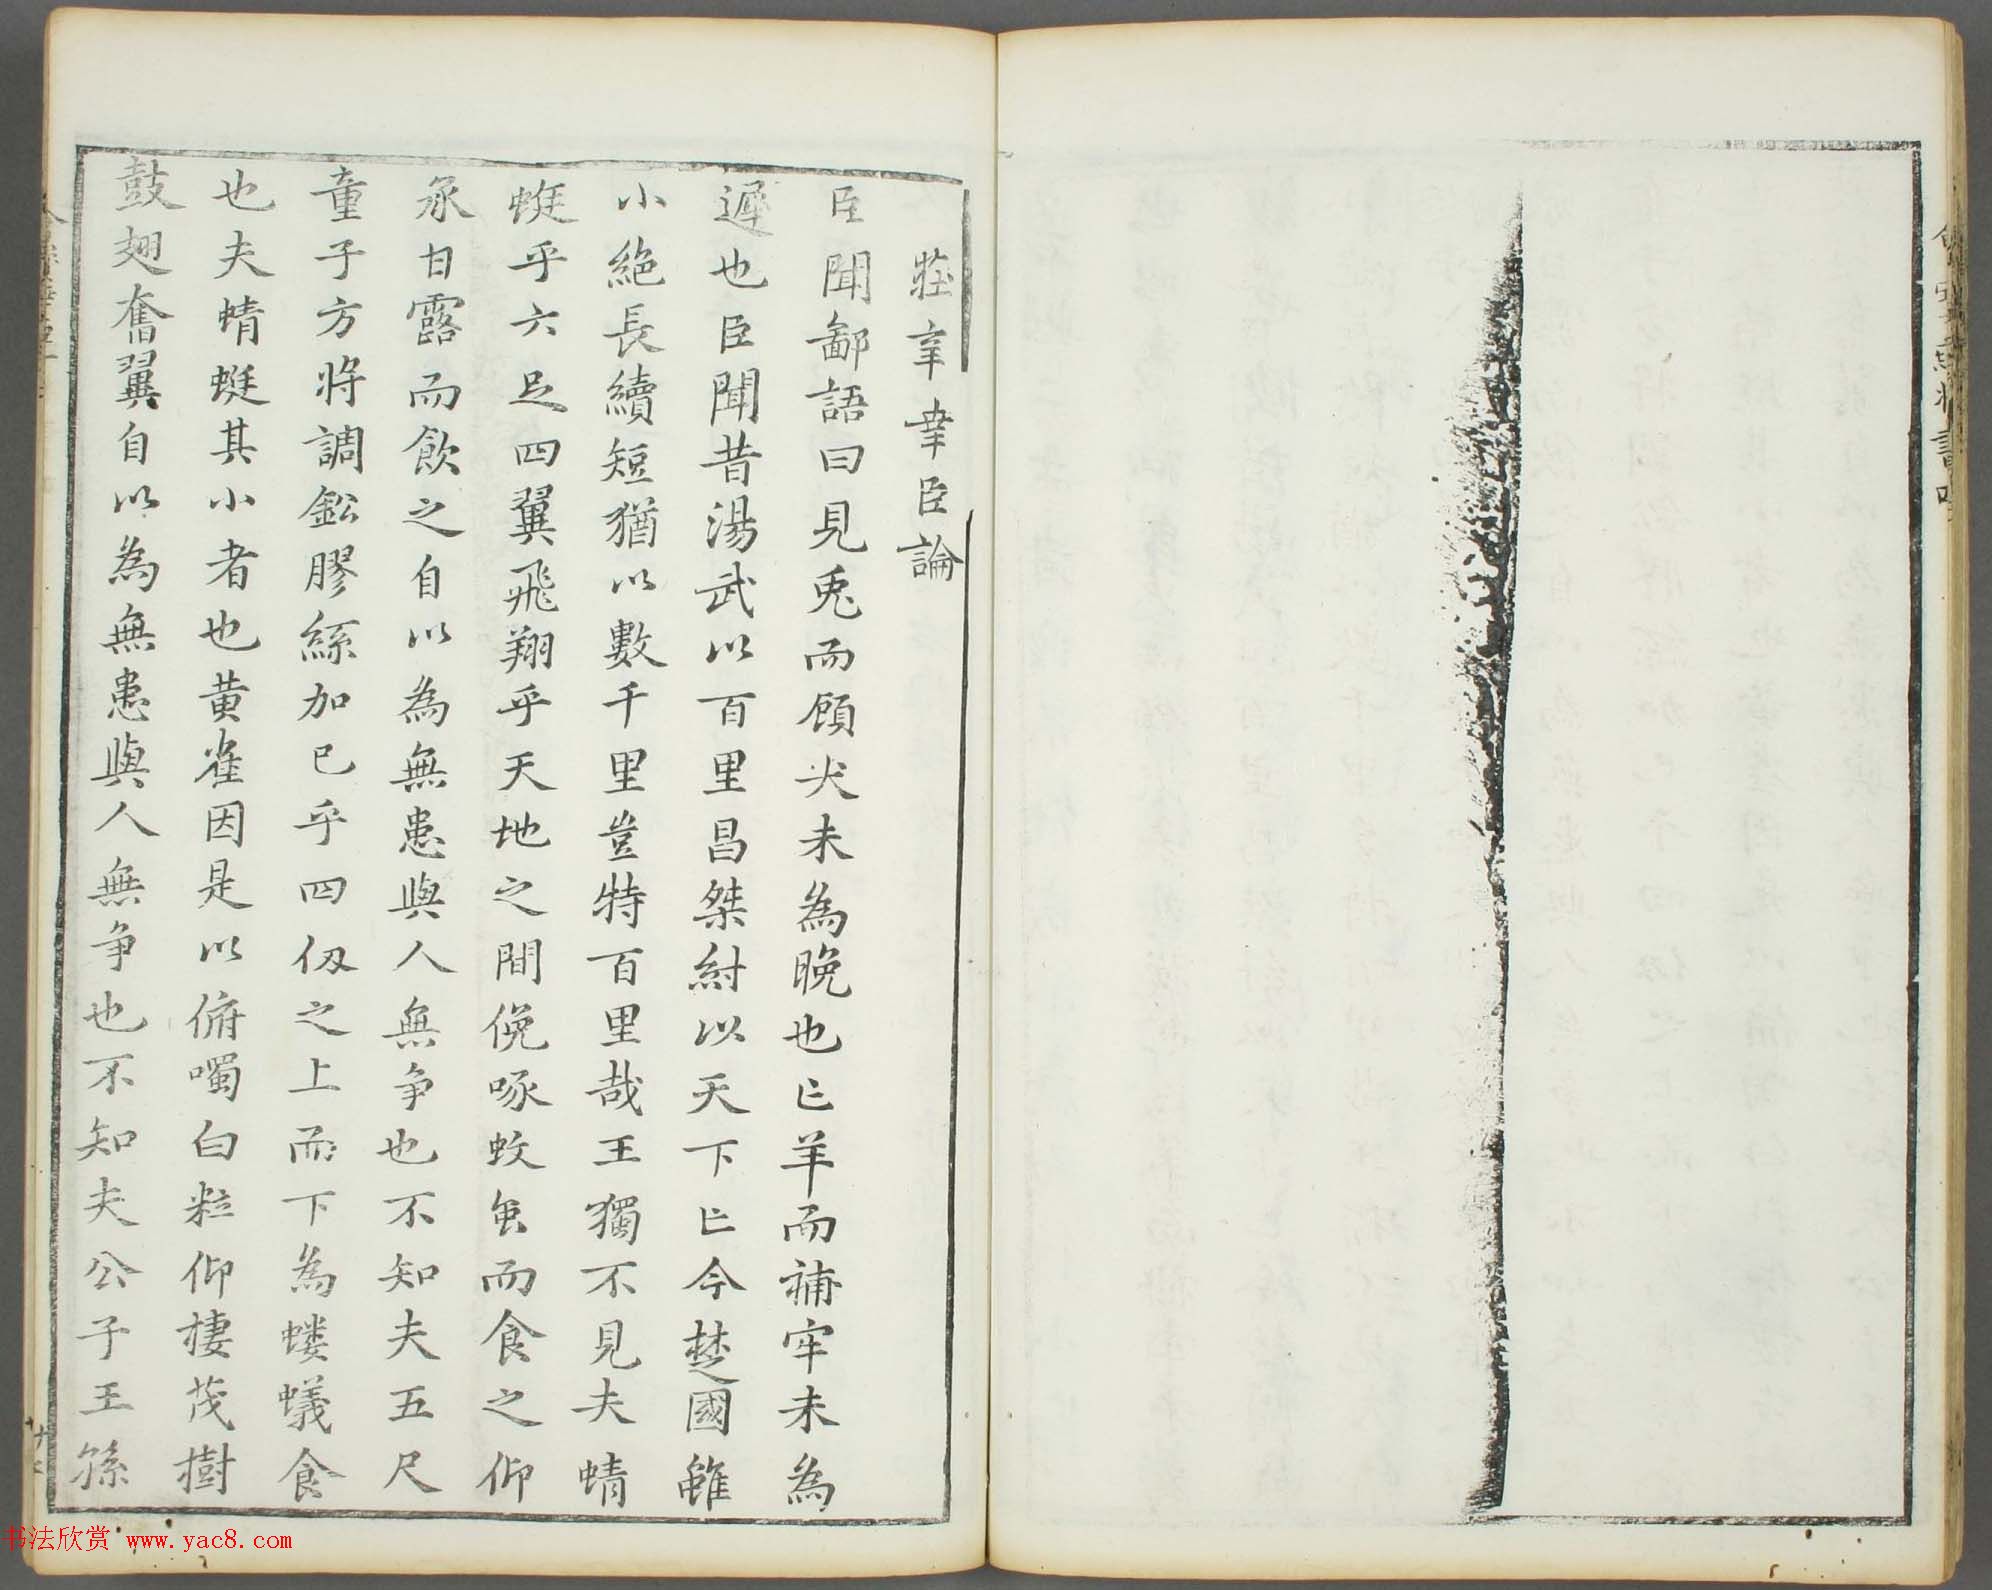 莊辛幸臣論
臣聞鄙語曰見兎而顧犬未為晚也亡羊而補牢未為
遲也臣聞昔湯武以百里昌桀紂以天下亡今楚國雖
小絶長續短猶以數千里豈特百里哉王獨不見夫蜻
蜓乎六足四翼飛翔乎天地之間俛啄蚊虻而食之仰
承甘露而飲之自以為無患與人無争也不知夫五尺
童子方將調鈆膠絲加已乎四仭之上而下為螻蟻食
也夫蜻蜓其小者也黄雀因是以俯噣白粒仰棲茂樹
鼓翅奮翼自以為無患與人無争也不知夫公子王孫
书法欣赏 www.yac8.com